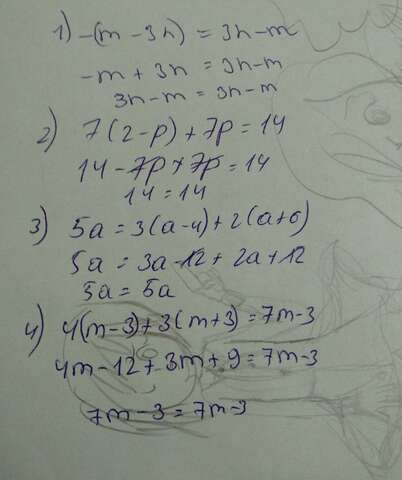 1) -(m - 3n) = 3n - m
-m + 3n = 3n - m
3n - m = 3n - m
2) 7(2-p) + 7p = 14
14 - 7p + 7p = 14
14 = 14
3) 5a = 3(a-4) + 2(a+6)
5a = 3a - 12 + 2a + 12
5a = 5a
4) 4(m-3) + 3(m+3) = 7m - 3
4m - 12 + 3m + 9 = 7m - 3
7m - 3 = 7m - 3